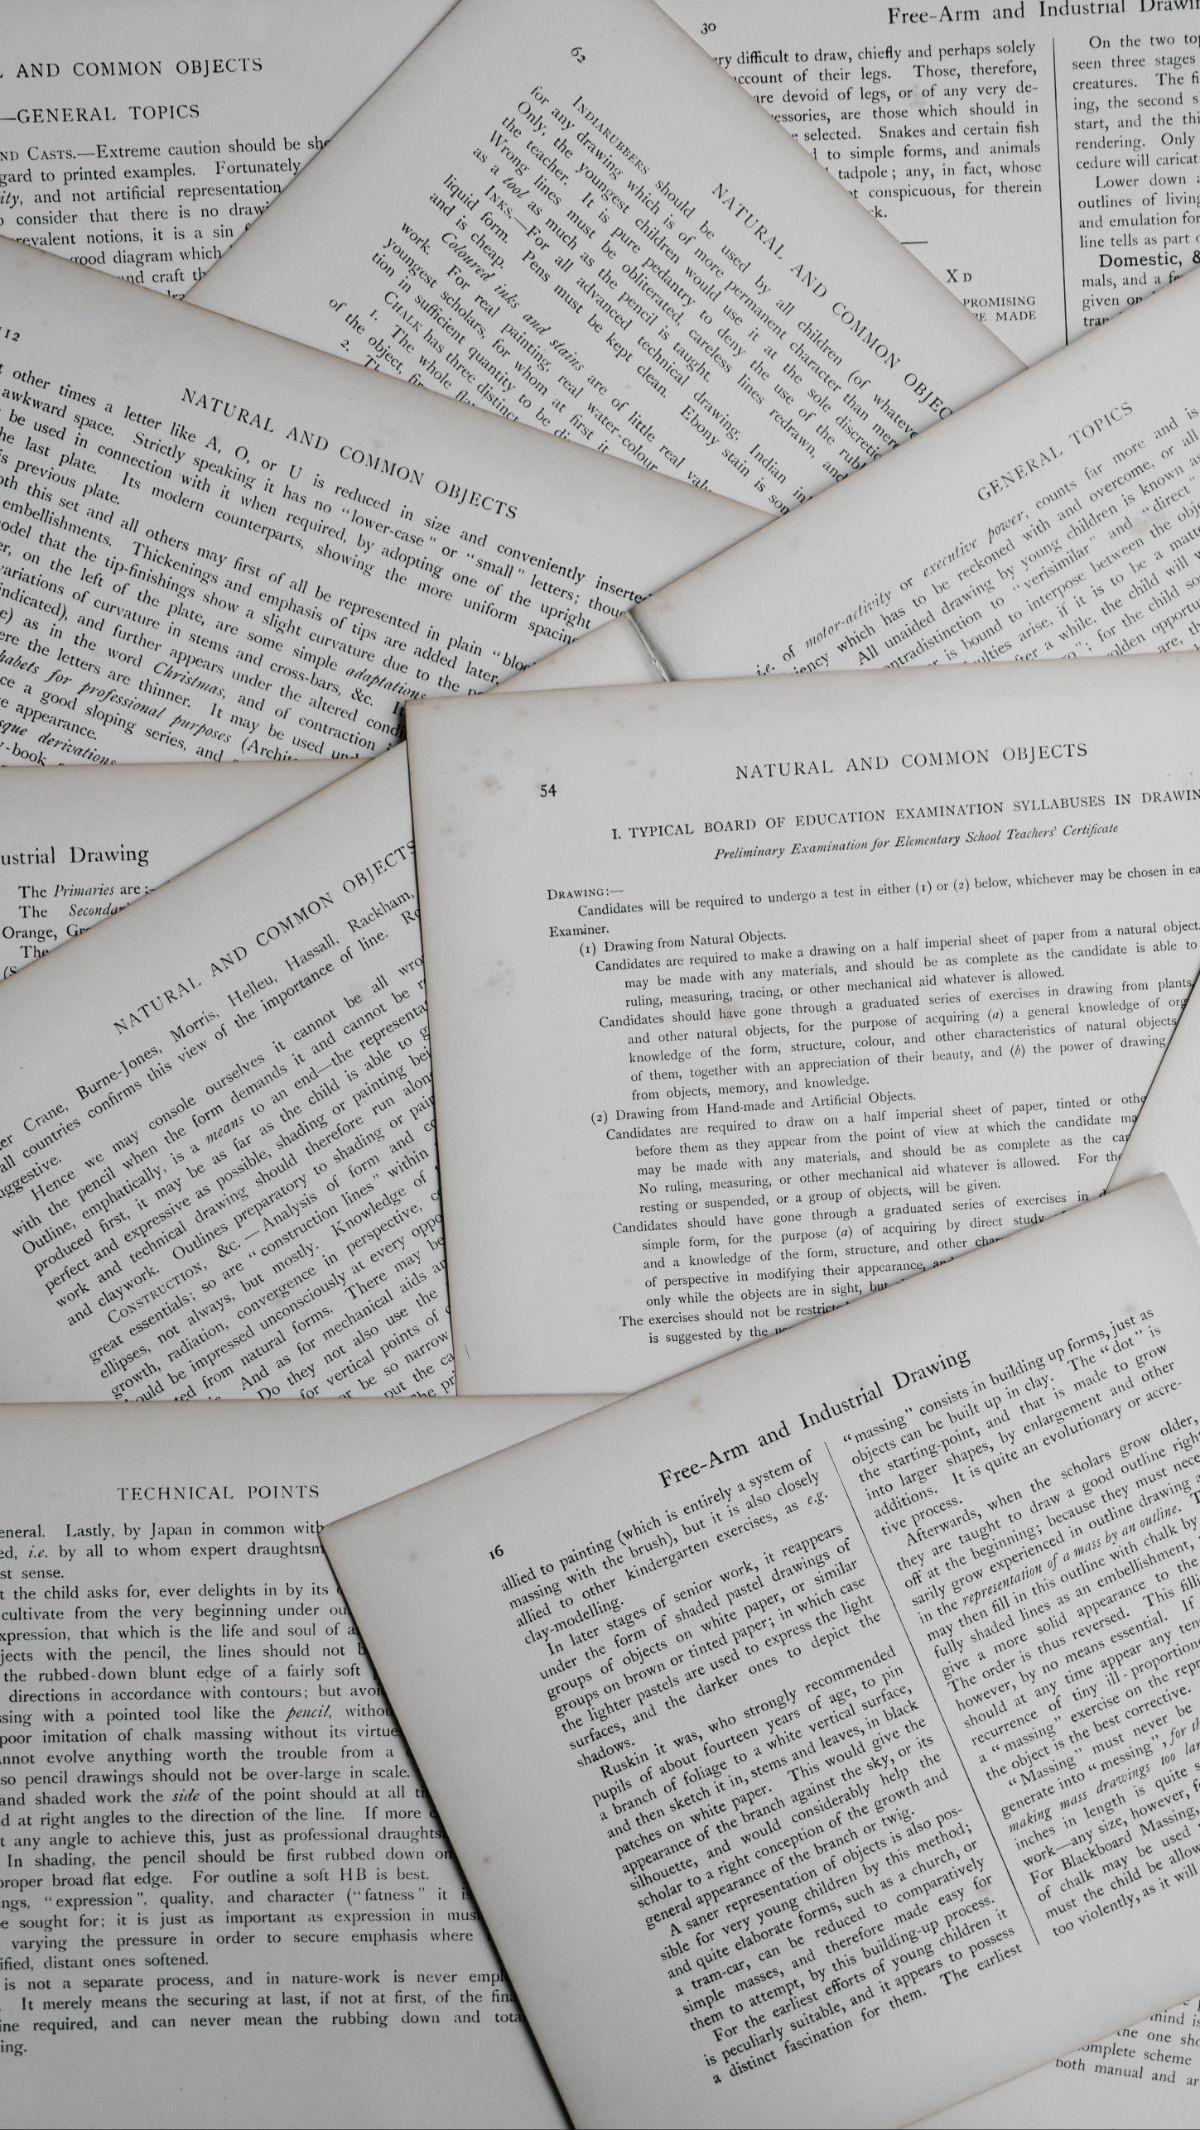 AND COMMON OBJECTS
—GENERAL TOPICS
ND CASTS.—Extreme caution should be
gard to printed examples. Fortunately
ity, and not artificial representation
consider that there is no
revalent notions, it is a sin
good diagram which
and craft
62
NATURAL AND COMMON OBJEC
INDIARUBBERS should be used by all children (of whateve
for any drawing which is of more permanent character than mere
Only, the youngest children would use it at the sole discretic
the teacher. It is pure pedantry to deny the use of the rubb
Wrong lines must be obliterated, careless lines redrawn, and
as a tool as much as the pencil is taught.
INKS.—For all advanced technical drawing, Indian in
liquid form. Pens must be kept clean. Ebony stain is son
and is cheap.
Coloured inks and stains are of little real valu
work. For real painting, real water-colour
youngest scholars, for whom at first it
tion in sufficient quantity to be di
CHALK has three distinct
1. The whole
of the object,
2.
30
Free-Arm and Industrial Drawin
ry difficult to draw, chiefly and perhaps solely
account of their legs. Those, therefore,
are devoid of legs, or of any very de-
essories, are those which should in
selected. Snakes and certain fish
to simple forms, and animals
tadpole; any, in fact, whose
conspicuous, for therein
ck.
X D
PROMISING
RE MADE
On the two top
seen three stages
creatures. The fi
ing, the second s
start, and the thi
rendering. Only
cedure will caricat
Lower down a
outlines of living
and emulation for
line tells as part o
Domestic, &
mals, and a
given on
112
NATURAL AND COMMON OBJECTS
other times a letter like A, O, or U is reduced in size and conveniently inserted
awkward space. Strictly speaking it has no “lower-case” or “small” letters; thoug
be used in connection with it when required, by adopting one of the upright
he last plate. Its modern counterparts, showing the more uniform spacing
is previous plate.
oth this set and all others may first of all be represented in plain “bloc
embellishments. Thickenings and emphasis of tips are added later,
odel that the tip-finishings show a slight curvature due to the
er, on the left of the plate, are some simple adaptations
variations of curvature in stems and cross-bars, &c.
indicated), and further appears under the altered condi
e) as in the word Christmas, and of contraction
ere the letters are thinner. It may be used
habets for professional purposes (Archit
ce a good sloping series, and
e appearance.
sque derivations
-book
GENERAL TOPICS
i.e. of motor-activity or executive power, counts far more and is
iency which has to be reckoned with and overcome, or all
All unaided drawing by young children is known as
ontradistinction to “verisimilar” and “direct”
is bound to interpose between the obje
ulties arise, if it is to be a matte
fter a while, the child will
for the child
olden opportu
are,
ustrial Drawing
The Primaries are:—
The
Orange,
The
NATURAL AND COMMON OBJECTS
er Crane, Burne-Jones, Morris, Helleu, Hassall, Rackham,
all countries confirms this view of the importance of line.
uggestive.
Hence we may console ourselves it cannot be all wro
with the pencil when the form demands it and cannot be
Outline, emphatically, is a means to an end—the representa
produced first, it may be as far as the child is able to
perfect and expressive as possible, shading or painting bei
work and technical drawing should therefore run along
and claywork. Outlines preparatory to shading or pain
CONSTRUCTION, &c.—Analysis of form and
great essentials; so are “construction lines” within
ellipses, not always, but mostly. Knowledge of
growth, radiation, convergence in perspective,
ould be impressed unconsciously at every oppo
ted from natural forms. There may be
And as for mechanical aids
Do they not also use the
for vertical points of
or be so narrow
put the
54
NATURAL AND COMMON OBJECTS
I. TYPICAL BOARD OF EDUCATION EXAMINATION SYLLABUSES IN DRAWIN
Preliminary Examination for Elementary School Teachers' Certificate
DRAWING:—
Candidates will be required to undergo a test in either (1) or (2) below, whichever may be chosen in ea
Examiner.
(1) Drawing from Natural Objects.
Candidates are required to make a drawing on a half imperial sheet of paper from a natural object.
may be made with any materials, and should be as complete as the candidate is able to
ruling, measuring, tracing, or other mechanical aid whatever is allowed.
Candidates should have gone through a graduated series of exercises in drawing from plants
and other natural objects, for the purpose of acquiring (a) a general knowledge of
knowledge of the form, structure, colour, and other characteristics of natural objects
of them, together with an appreciation of their beauty, and (b) the power of drawing
from objects, memory, and knowledge.
(2) Drawing from Hand-made and Artificial Objects.
Candidates are required to draw on a half imperial sheet of paper, tinted or othe
before them as they appear from the point of view at which the candidate ma
may be made with any materials, and should be as complete as the can
No ruling, measuring, or other mechanical aid whatever is allowed. For the
resting or suspended, or a group of objects, will be given.
Candidates should have gone through a graduated series of exercises in
simple form, for the purpose (a) of acquiring by direct study
and a knowledge of the form, structure, and other char
of perspective in modifying their appearance, and
only while the objects are in sight, but
The exercises should not be restricte
is suggested by the
TECHNICAL POINTS
eneral. Lastly, by Japan in common with
ed, i.e. by all to whom expert draughtsm
st sense.
t the child asks for, ever delights in by its
cultivate from the very beginning under ou
xpression, that which is the life and soul of a
jects with the pencil, the lines should not b
the rubbed-down blunt edge of a fairly soft
directions in accordance with contours; but avoi
ssing with a pointed tool like the pencil, withou
poor imitation of chalk massing without its virtue
nnot evolve anything worth the trouble from a
so pencil drawings should not be over-large in scale.
and shaded work the side of the point should at all ti
d at right angles to the direction of the line. If more
t any angle to achieve this, just as professional draughts
In shading, the pencil should be first rubbed down on
proper broad flat edge. For outline a soft HB is best.
ngs, “expression”, quality, and character (“fatness” it is
e sought for; it is just as important as expression in mus
varying the pressure in order to secure emphasis where
ified, distant ones softened.
is not a separate process, and in nature-work is never empl
It merely means the securing at last, if not at first, of the fina
ine required, and can never mean the rubbing down and tota
ing.
16
Free-Arm and Industrial Drawing
allied to painting (which is entirely a system of
massing with the brush), but it is also closely
allied to other kindergarten exercises, as e.g.
clay-modelling.
In later stages of senior work, it reappears
under the form of shaded pastel drawings of
groups of objects on white paper, or similar
groups on brown or tinted paper; in which case
the lighter pastels are used to express the light
surfaces, and the darker ones to depict the
shadows.
Ruskin it was, who strongly recommended
pupils of about fourteen years of age, to pin
a branch of foliage to a white vertical surface,
and then sketch it in, stems and leaves, in black
patches on white paper. This would give the
appearance of the branch against the sky, or its
silhouette, and would considerably help the
scholar to a right conception of the growth and
general appearance of the branch or twig.
A saner representation of objects is also pos-
sible for very young children by this method;
and quite elaborate forms, such as a church, or
a tram-car, can be reduced to comparatively
simple masses, and therefore made easy for
them to attempt, by this building-up process.
For the earliest efforts of young children it
is peculiarly suitable, and it appears to possess
a distinct fascination for them. The earliest
“massing” consists in building up forms, just as
objects can be built up in clay. The “dot” is
the starting-point, and that is made to grow
into larger shapes, by enlargement and other
additions. It is quite an evolutionary or accre-
tive process.
Afterwards, when the scholars grow older,
they are taught to draw a good outline right
off at the beginning; because they must nece
sarily grow experienced in outline drawing a
in the representation of a mass by an outline.
may then fill in this outline with chalk by
fully shaded lines as an embellishment,
give a more solid appearance to the
The order is thus reversed. This filli
however, by no means essential. If
should at any time appear any ten
recurrence of tiny ill-proportione
a “massing” exercise on the repr
the object is the best corrective.
“Massing” must never be
generate into “messing”, for th
making mass drawings too lar
inches in length is quite s
work—any size, however, fo
For Blackboard Massing,
of chalk may be used
must the child be allow
too violently, as it will
mind is
the one sho
omplete scheme
both manual and ar